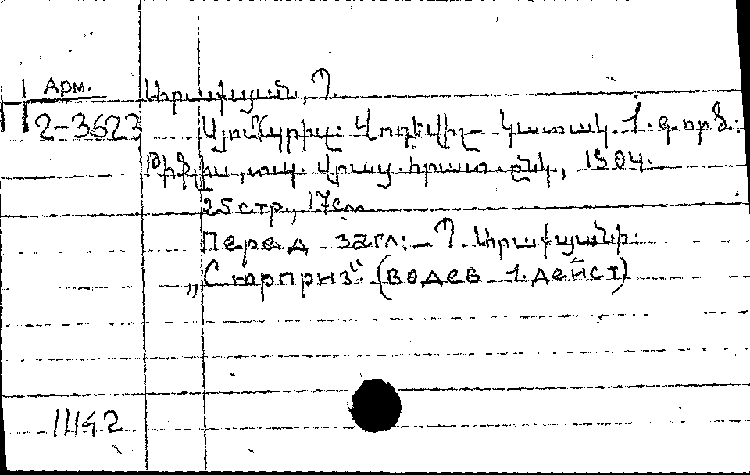 Арм.
Արաֆյան, Պ.
2-3623
Սյուրպրիզ: Վոդևիլ- կատակ. 1. գործ:
Թիֆլիս, տպ. Վրաց. հրատ. ընկ, 1904.
25 стр, 17см
Перед загл: Պ. Արաֆյանի:
„Сюрприз“ (водев 1. дейст)
1142